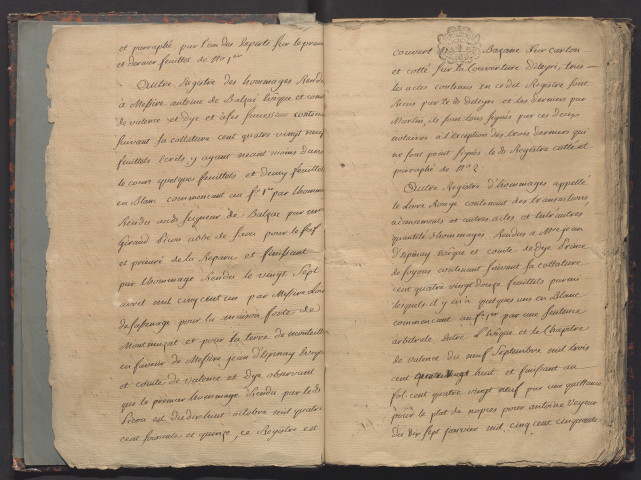 et parraphé par l'un des Experts sur le premier
et dernier feuillet de No 1er
Autre Registre des hommages Rendus
à Messire antoine de Balzac Evêque et comte
de valence et dye et à ses successeurs contenant
suivant sa cottature cent quatre vingt neuf
feuillets Ecrits, y ayant neant moins dans
le cours quelques feuillets et demy feuillets
en blanc commencant au fo 1er par l'homage
Rendu aud. seigneur de Balzac par
Giraud abbé de pour le fief
et prieuré de la Repara et finissant
par l'hommage Rendu le vingt sept
avril mil cinq cent un par Messire
de sassenage pour la maison forte de
et pour la terre de
en faveur de Messire jean d'Espinay Evêque
et comte de valence et dye observant
que le premier hommage Rendu par led.
est du dix huit octobre mil quatre
cent soixante et quinze, ce Registre est
couvert de Bazane sur carton
et cotté sur la couverture tous
les actes contenus en ce det Registre sont
Recus par Me et les derniers par
Martin, ils sont tous signés par ces deux
notaires à l'exception des trois derniers qui
ne sont point signés le d. Registre cotté et
paraphé de No 2
Autre Registre d'hommages appellé
le Livre Rouge contenant des transactions,
albergements et autres actes et
quantité d'hommages Rendus a Mre jean
d'Espinay Evêque et comte de dye Prince
de soyons contenant suivant sa cottature
cent quatre vingt douze feuillets parmi
lesquels il y en a quelques uns en Blanc
commencant au fo 1er par une sentence
arbitrale entre l'Evêque et le chapitre
de valence du neuf septembre mil trois
cent huit et finissant au
fol. cent quatre vingt neuf par une quittance
pour le plat de noces pour antoine
du dix sept janvier mil cinq cent cinquante